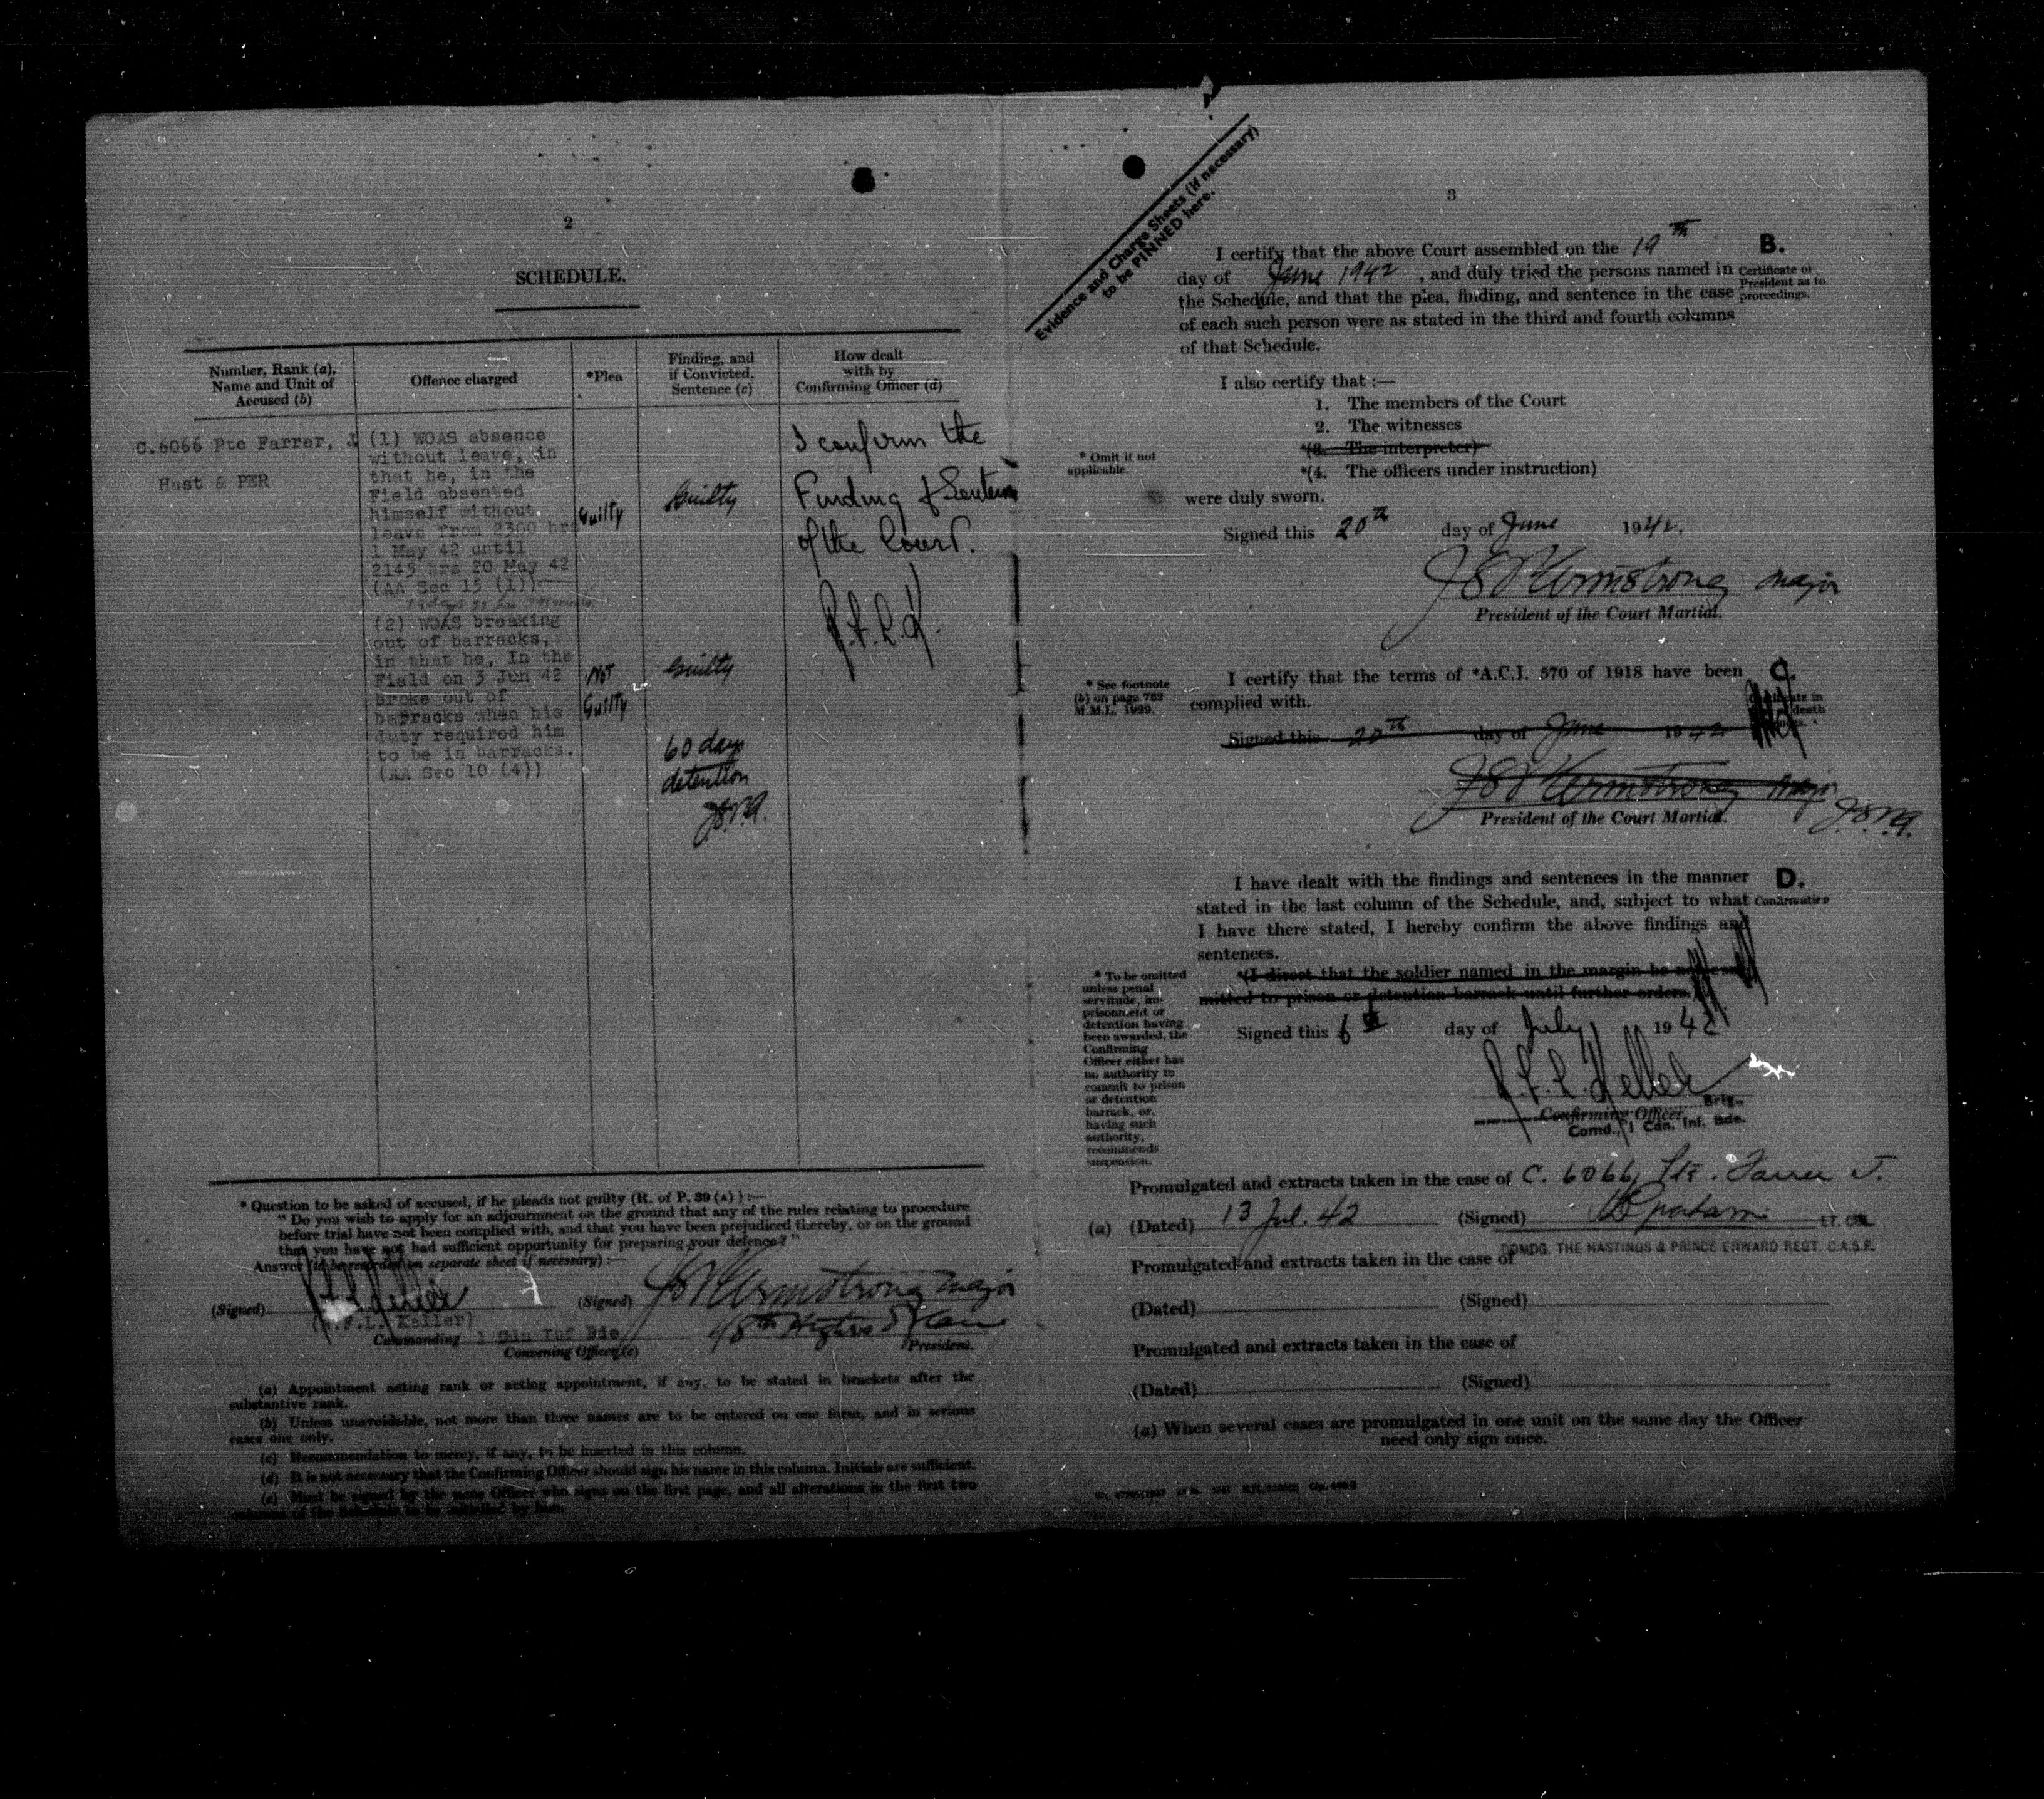 2
SCHEDULE.
Number, Rank (a),
Name and Unit of
Accused (b)
Offence charged
*Plea
Finding, and
if Convicted,
Sentence (c)
How dealt
with by
Confirming Officer (d)
C.6066 Pte Farrer, J
Hast & PER
(1) WOAS absence
without leave, in
that he, in the
Field absented
himself without
leave from 2300 hrs
1 May 42 until
2145 hrs 20 May 42
(AA Sec 15 (1))
Guilty
Guilty
(2) WOAS breaking
out of barracks,
in that he, In the
Field on 3 Jun 42
broke out of
barracks when his
duty required him
to be in barracks.
(AA Sec 10 (4))
Not
Guilty
Guilty
60 days
detention
J.S.P.A.
I confirm the
Finding & Sentence
of the Court.
R.F.L.K.
* Question to be asked of accused, if he pleads not guilty (R. of P. 39 (A) ):—
" Do you wish to apply for an adjournment on the ground that any of the rules relating to procedure
before trial have not been complied with, and that you have been prejudiced thereby, or on the ground
that you have not had sufficient opportunity for preparing your defence? "
Answer (to be recorded on separate sheet if necessary) :—
(Signed) R.F.L. Keller
(R.F.L. Keller)
Commanding 1 Cdn Inf Bde
Convening Officer (e)
(Signed) JSP Armstrong Major
48th Highrs of Can
President.
(a) Appointment acting rank or acting appointment, if any, to be stated in brackets after the
substantive rank.
(b) Unless unavoidable, not more than three names are to be entered on one form, and in serious
cases one only.
(c) Recommendation to mercy, if any, to be inserted in this column.
(d) It is not necessary that the Confirming Officer should sign his name in this column. Initials are sufficient.
(e) Must be signed by the same Officer who signs on the first page, and all alterations in the first two
columns of the Schedule to be initialled by him.
Evidence and Charge Sheets (if necessary)
to be PINNED here.
3
I certify that the above Court assembled on the 19th
day of June 1942, and duly tried the persons named in
the Schedule, and that the plea, finding, and sentence in the case
of each such person were as stated in the third and fourth columns
of that Schedule.
B.
Certificate of
President as to
proceedings.
I also certify that :—
1. The members of the Court
2. The witnesses
*(3. The interpreter)
*(4. The officers under instruction)
* Omit if not
applicable.
were duly sworn.
Signed this 20th day of June 1942.
JSP Armstrong Major
President of the Court Martial.
I certify that the terms of *A.C.I. 570 of 1918 have been
complied with.
C.
* See footnote
(b) on page 762
M.M.L. 1929.
Signed this 20th day of June 1942
JSP Armstrong Major
J.S.P.A.
President of the Court Martial.
I have dealt with the findings and sentences in the manner
stated in the last column of the Schedule, and, subject to what
I have there stated, I hereby confirm the above findings and
sentences.
D.
Confirmation
*(I direct that the soldier named in the margin be not com-
mitted to prison or detention barrack until further orders.)
* To be omitted
unless penal
servitude, im-
prisonment or
detention having
been awarded, the
Confirming
Officer either has
no authority to
commit to prison
or detention
barrack, or,
having such
authority,
recommends
suspension.
Signed this 6th day of July 1942
R.F.L. Keller
Brig.,
Confirming Officer.
Comd., 1 Can. Inf. Bde.
Promulgated and extracts taken in the case of C. 6066 Pte. Farrer J.
(a) (Dated) 13 Jul. 42 (Signed) LT. COL.
COMDG. THE HASTINGS & PRINCE EDWARD REGT. C.A.S.F.
Promulgated and extracts taken in the case of
(Dated) (Signed)
Promulgated and extracts taken in the case of
(Dated) (Signed)
(a) When several cases are promulgated in one unit on the same day the Officer
need only sign once.